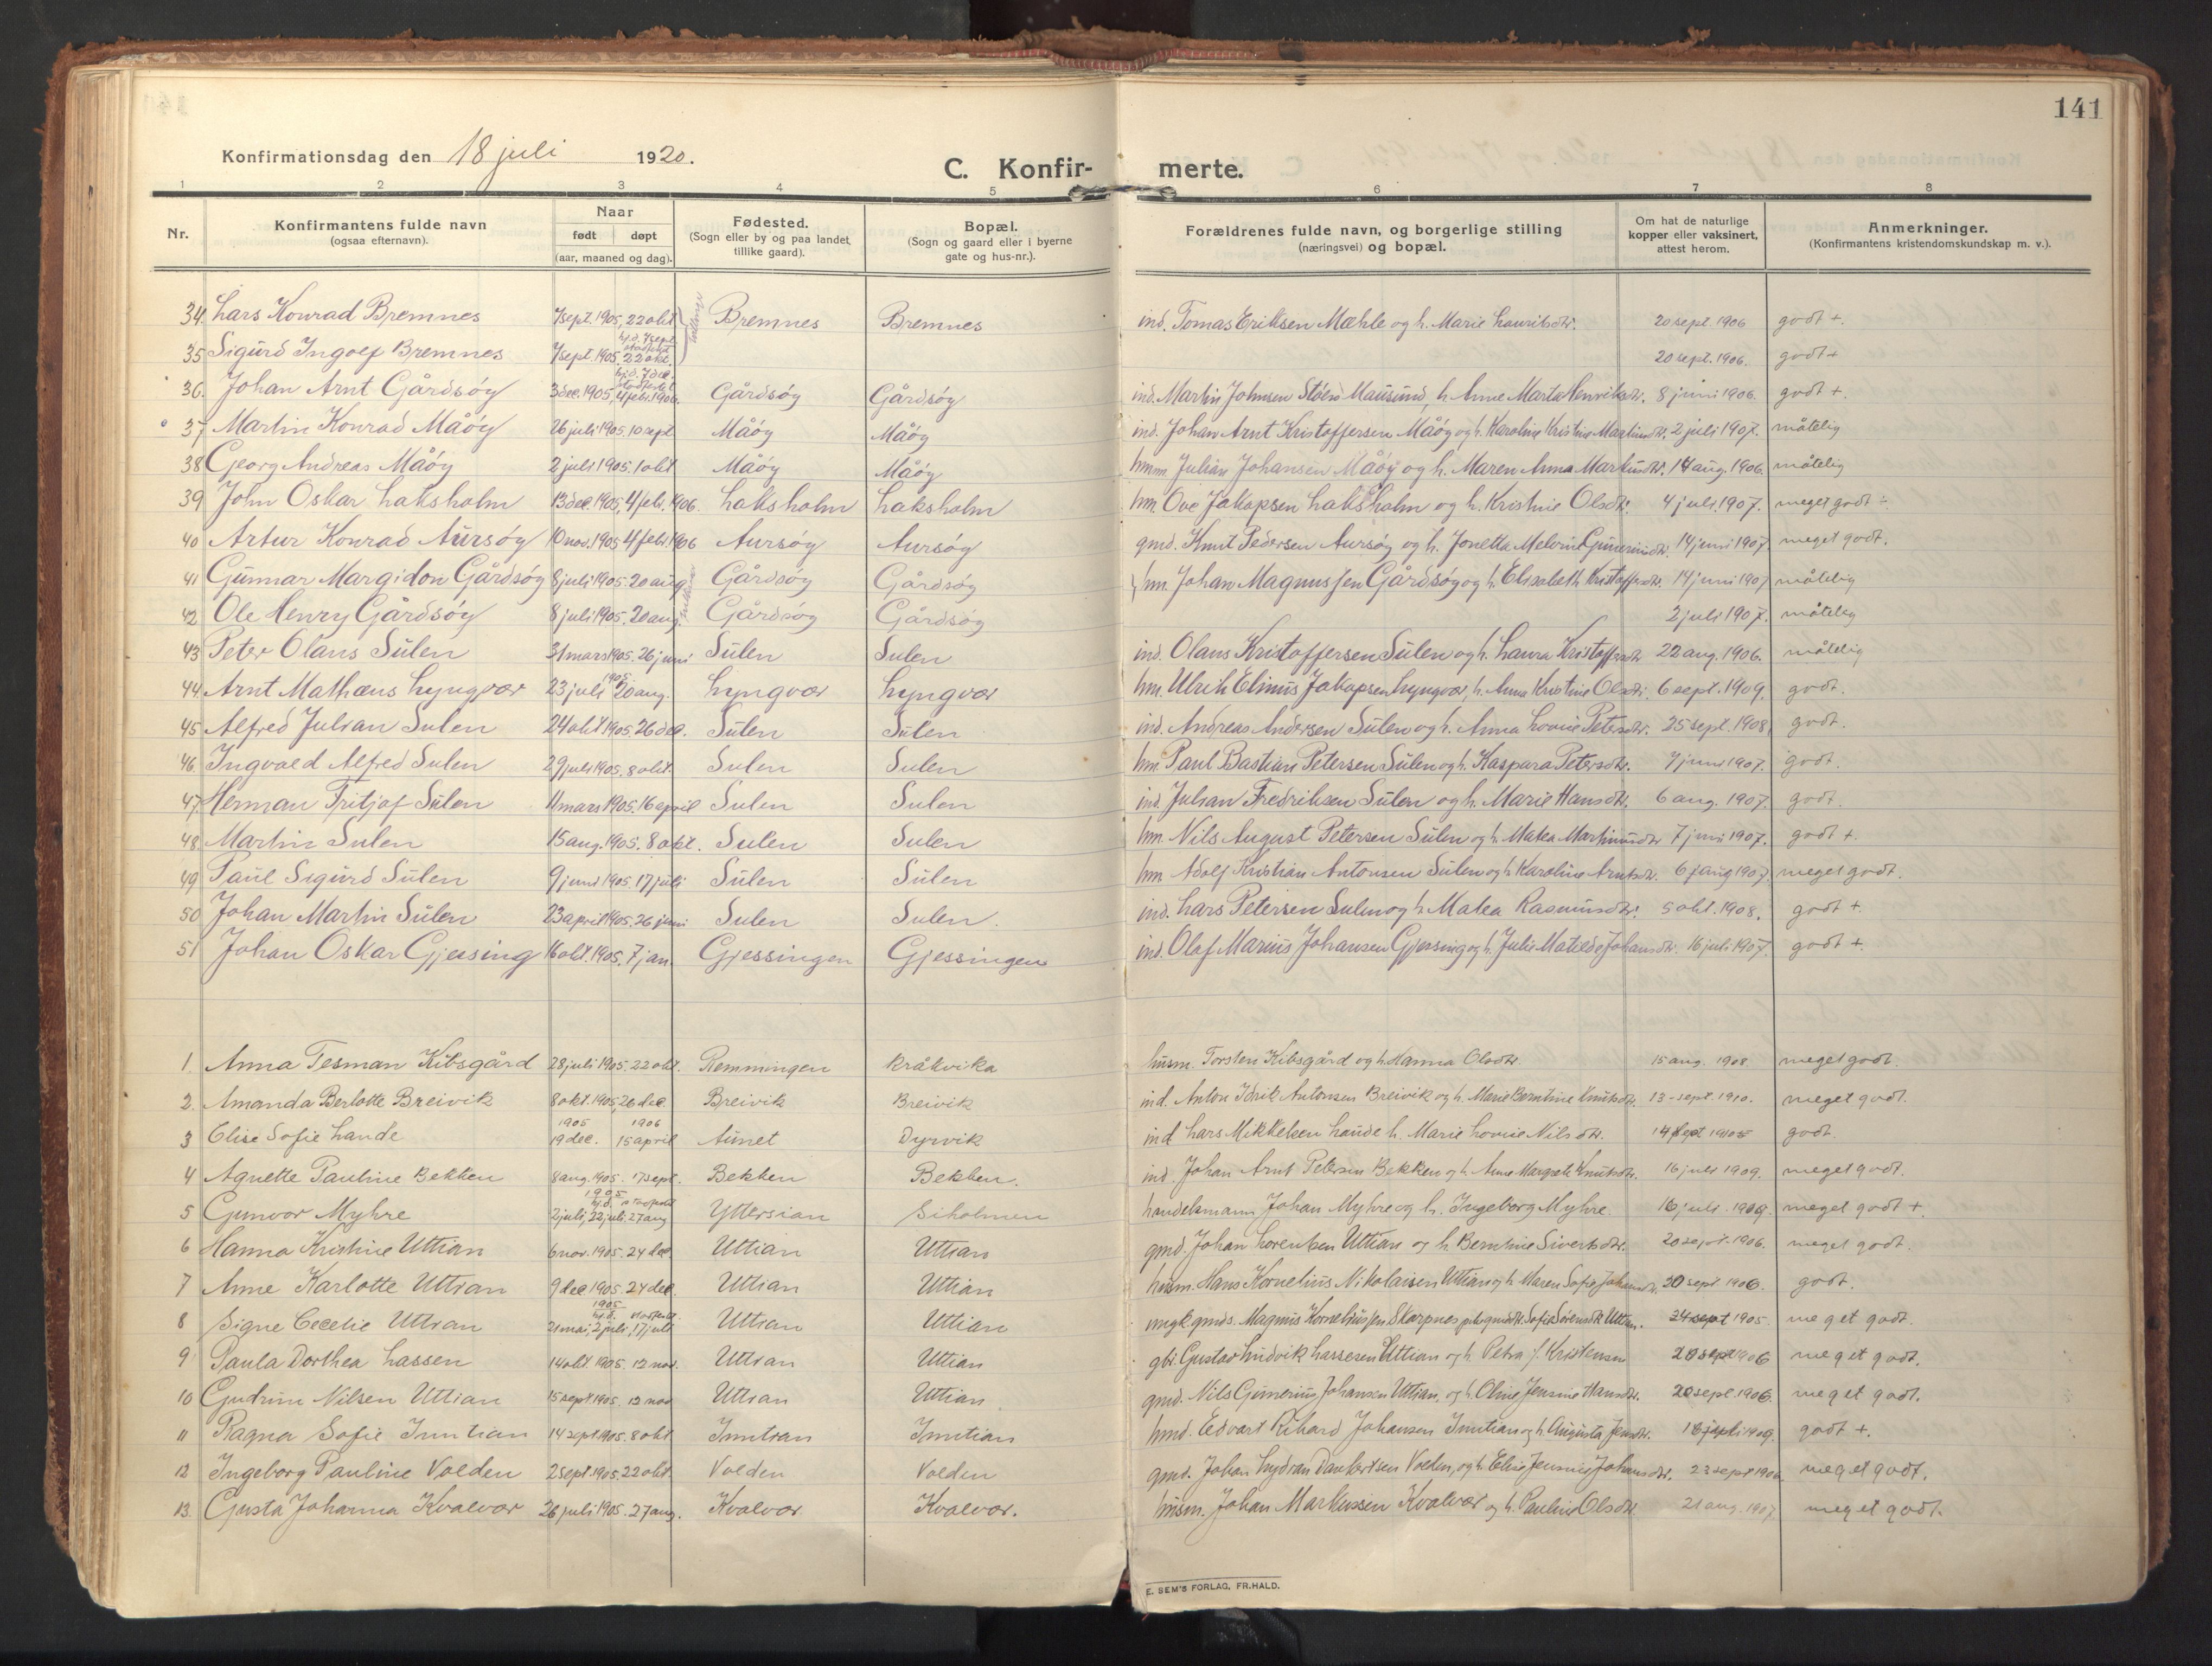 141
Konfirmationsdag den 18 juli 1920.
C. Konfir- merte.
1 2 3 4 5 6 7 8
Nr. Konfirmantens fulde navn (ogsaa efternavn). Naar født døpt (aar, maaned og dag). Fødested. (Sogn eller by og paa landet, tillike gaard). Bopæl. (Sogn og gaard eller i byerne gate og hus-nr.). Forældrenes fulde navn, og borgerlige stilling (næringsvei) og bopæl. Om hat de naturlige kopper eller vaksinert, attest herom. Anmerkninger. (Konfirmantens kristendomskundskap m. v.).
34. Lars Konrad Bremnes 7 sept. 1905, 22 okt. Bremnes Bremnes ind. Tomas Eriksen Mæhle og h. Marie Lauritsdtr. 20 sept. 1906 godt +.
35 Sigurd Ingolf Bremnes 7 sept. 1905. hj.d. 7 sept. stadfestet 22 okt. 20 sept. 1906. godt +
36. Johan Arnt Gårdsøy 3 dec. 1905, hj.d. 7 dec. stadfestet 4 febr. 1906. Gårdsøy Gårdsøy ind. Martin Johnsen Støen Mausund, h. Anne Marta Henriksdtr. 8 juni 1906. godt +.
37 Martin Konrad Måøy 26 juli 1905, 10 sept Måøy Måøy ind. Johan Arnt Kristoffersen Måøy og h. Karoline Kristine Martinsdtr. 2 juli 1907. måtelig
38 Georg Andreas Måøy 2 juli 1905. 1 okt Måøy Måøy hmm. Julian Johansen Måøy og h. Maren Anna Markusdtr. 14 aug. 1906. måtelig
39 John Oskar Laksholm 13 dec. 1905, 4 febr. 1906. Laksholm Laksholm hm. Ove Jakopsen Laksholm og h. Kristine Olsdtr. 4 juli 1907. meget godt ÷
40 Artur Konrad Aursøy 10 nov. 1905 4 febr. 1906 Aursøy Aursøy gmd. Knut Pedersen Aursøy og h. Jonetta Melvine Gunneriusdtr. 14 juni 1907 meget godt.
41 Gunnar Margidon Gårdsøy 8 juli 1905. 20 aug. Gårdsøy Gårdsøy hm. Johan Magnussen Gårdsøy og h. Elisabeth Kristoffersdtr. 14 juni 1907 måtelig
42 Ole Henry Gårdsøy 8 juli 1905. 20 aug. Gårdsøy Gårdsøy 2 juli 1907. måtelig
43 Peter Olaus Sulen 31 mars 1905. 26 juni Sulen Sulen ind. Olaus Kristoffersen Sulen og h. Laura Kristoffersdtr 22 aug. 1906. måtelig
44 Arnt Mathæus Lyngvær 23 juli 1905 20 aug. Lyngvær Lyngvær hm. Ulrik Elinus Jakopsen Lyngvær, h. Anna Kristine Olsdtr. 6 sept. 1909. godt.
45 Alfred Julian Sulen 24 okt 1905. 26 dec. Sulen Sulen ind. Andreas Andersen Sulen og h. Anna Lovise Petersdtr. 25 sept. 1908. godt.
46. Ingvald Alfred Sulen 29 juli 1905. 8 okt. Sulen Sulen hm. Paul Bastian Petersen Sulen og h. Kaspara Petersdtr. 7 juni 1907. godt.
47. Herman Fritjof Sulen 11 mars 1905. 16 april Sulen Sulen ind. Julian Fredriksen Sulen og h. Marie Hansdtr. 6 aug. 1907. godt.
48. Martin Sulen 15 aug. 1905. 8 okt. Sulen Sulen hm. Nils August Petersen Sulen og h. Matea Martinusdtr 7 juni 1907. godt +.
49 Paul Sigurd Sulen 9 juni 1905. 17 juli Sulen Sulen hm. Adolf Kristian Antonsen Sulen og h. Karoline Arntsdtr. 6 aug 1907. meget godt.
50 Johan Martin Sulen 23 april 1905. 26 juni Sulen Sulen. ind. Lars Petersen Sulen og h. Matea Rasmusdtr. 5 okt. 1908. godt +
51 Johan Oskar Gjessing 16 okt. 1905. 7 jan. Gjessingen Gjessingen ind. Olaf Marius Johansen Gjessing og h. Julie Matilde Johansdtr. 16 juli 1907. godt +
1. Anna Tesman Kibsgård 28 juli 1905. 22 okt. Remmingen Kråkvika husm. Torsten Kibsgård og h. Hanna Olsdtr. 15 aug. 1908 meget godt.
2. Amanda Berlotte Breivik 8 okt. 1905, 26 dec. Breivik Breivik ind. Anton Idrik Antonsen Breivik og h. Marie Berntine Knutsdtr. 13 - sept. 1910. meget godt.
3 Elise Sofie Lande 1905 19 dec. 1906 15 april Aunet Dyrvik ind Lars Mikkelsen Lande h. Marie Lovise Nilsdtr. 14 sept godt.
4 Agnette Pauline Bekken 8 aug. 1905. 17 sept. Bekken Bekken. ind. Johan Arnt Petersen Bekken og h. Anne Margrete Knutsdtr. 16 juli 1909. meget godt.
5 Gunvor Myhre 1905 2 juli, hj.d. 22 juli, stadfestet 27 aug Yttersian Siholmen handelsmann Johan Myhre og h. Ingeborg Myhre. 16 juli 1909. meget godt +.
6 Hanna Kristine Uttian 6 nov. 1905. 24 dec. Uttian Uttian gmd. Johan Lorentsen Uttian og h. Berntine Sivertsdtr. 20 sept. 1906. meget godt.
7 Anne Karlotte Uttian 9 dec 1905. 24 dec. Uttian Uttian husm. Hans Kornelius Nikolaisen Uttian og h. Maren Sofie Johansdtr. 20 sept 1906. godt.
8 Signe Cecelie Uttian 1905 21 mai, hj.d. 2 juli, stadfestet 17 juli Uttian Uttian ungk. gmds. Magnus Korneliussen Skarpnes pike gmdtr. Sofie Sørensdtr. Uttian. 24 sept 1905. meget godt.
9 Paula Dorthea Lassen 14 okt 1905. 12 nov. Uttian Uttian gbr. Gustav Ludvik Lassesen Uttian og h. Petra f. Kristensen 20 sept 1906 meget godt.
10 Gudrun Nilsen Uttian 15 sept 1905. 12 nov Uttian Uttian. gmd. Nils Gunerius Johansen Uttian, og h. Oline Jensine Hansdtr. 20 sept. 1906. meget godt.
11 Ragna Sofie Inntian 14 sept 1905. 8 okt Inntian Inntian hmd. Edvart Rikard Johansen Inntian og h. Augusta Jensdtr. 16 juli 1909. godt +.
12 Ingeborg Pauline Volden 2 sept. 1905. 22 okt. Volden Volden gmd. Johan Lydran Dankertsen Volden, og h. Elise Jensine Johansdtr. 22 sept 1906 meget godt.
13. Gusta Johanna Kvalvær 26 juli 1905. 27 aug. Kvalvær. Kvalvær. husm. Johan Markussen Kvalvær og h. Pauline Olsdtr. 21 aug. 1907. meget godt.
E. SEM'S FORLAG, FR.HALD.